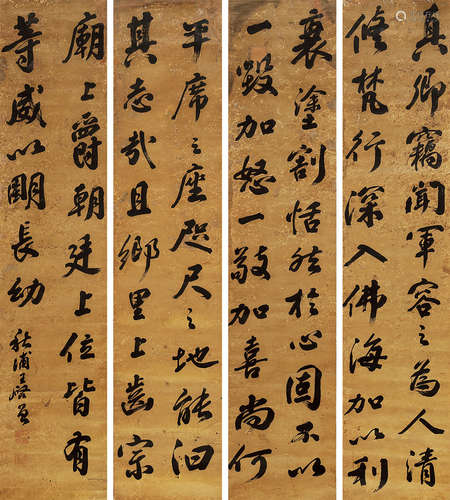 真卿竊聞軍容之為人清
修梵行深入佛海加以利
衰塗割恬然於心固不以
一毀加怒一敬加喜尚何
半席之座咫尺之地能汩
其志哉且鄉里上齒宗
廟上爵朝廷上位皆有
等威以明長幼
秋浦